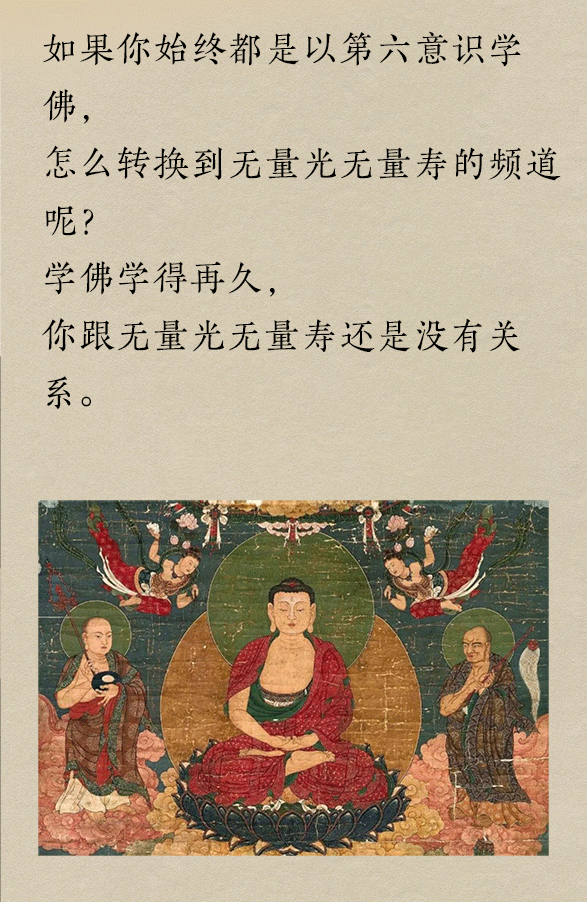 如果你始终都是以第六意识学
佛，
怎么转换到无量光无量寿的频道
呢？
学佛学得再久，
你跟无量光无量寿还是没有关
系。